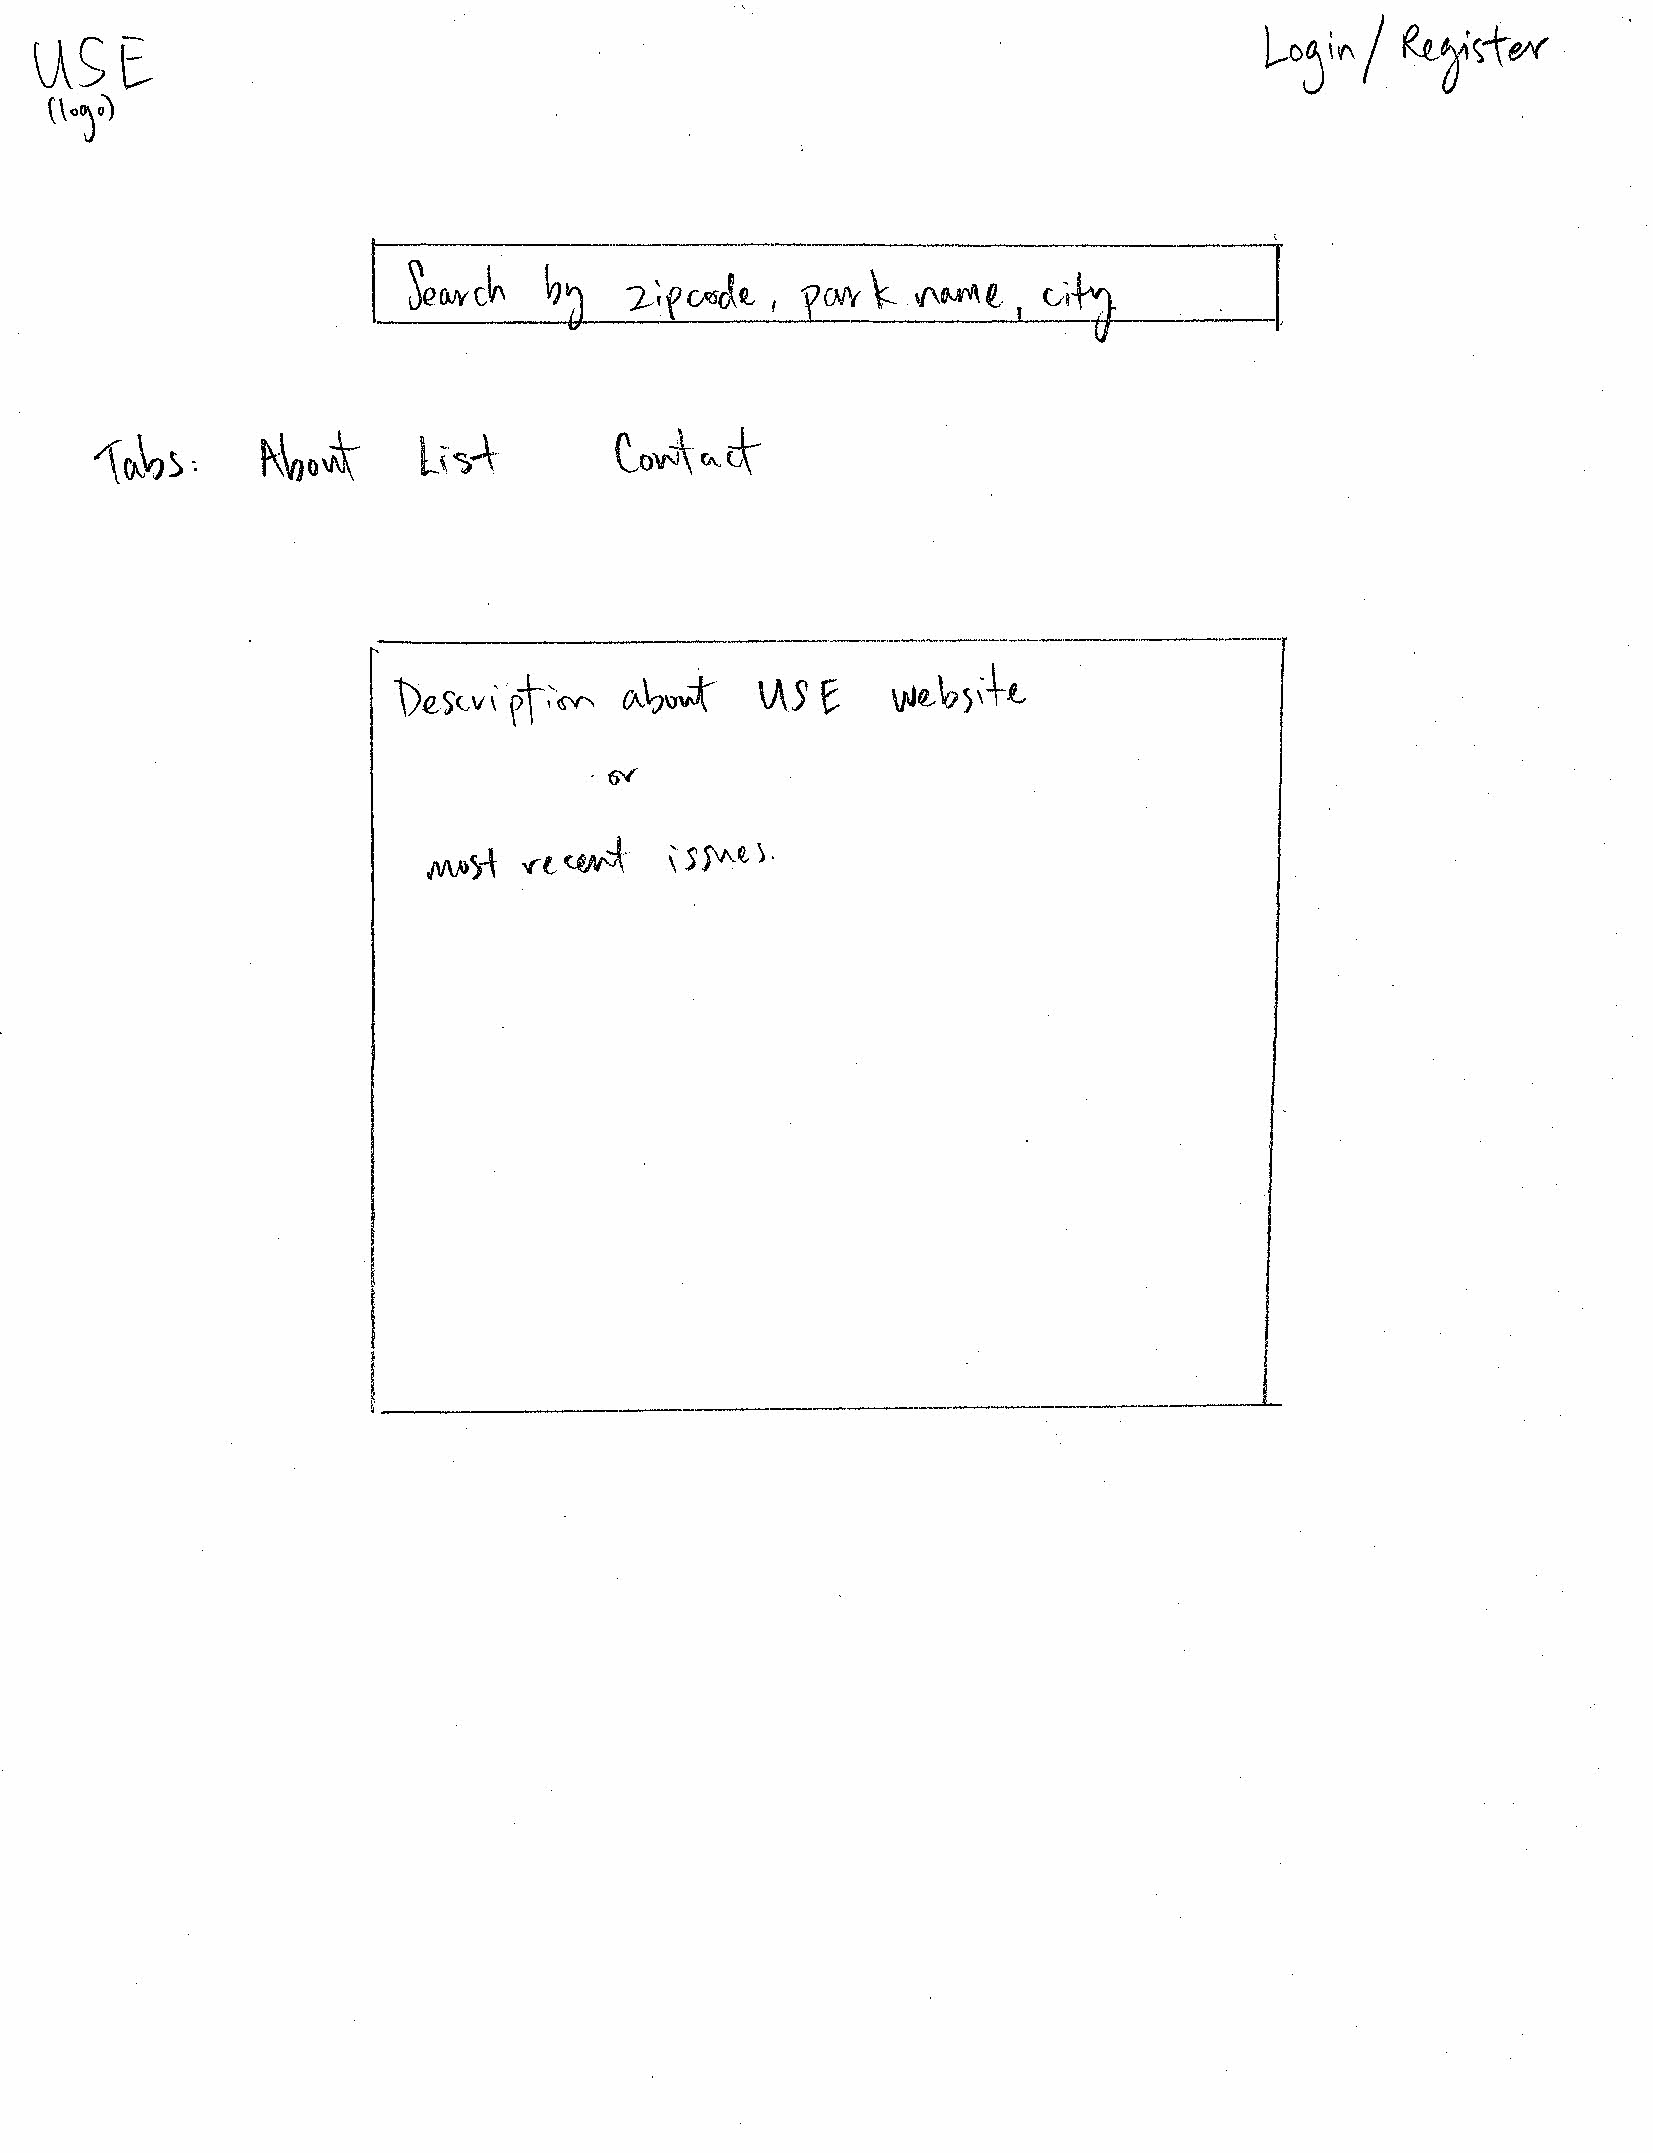 USE Login / Register
(logo)
Search by zipcode, park name, city
Tabs: About List Contact
Description about USE website
or
most recent issues.